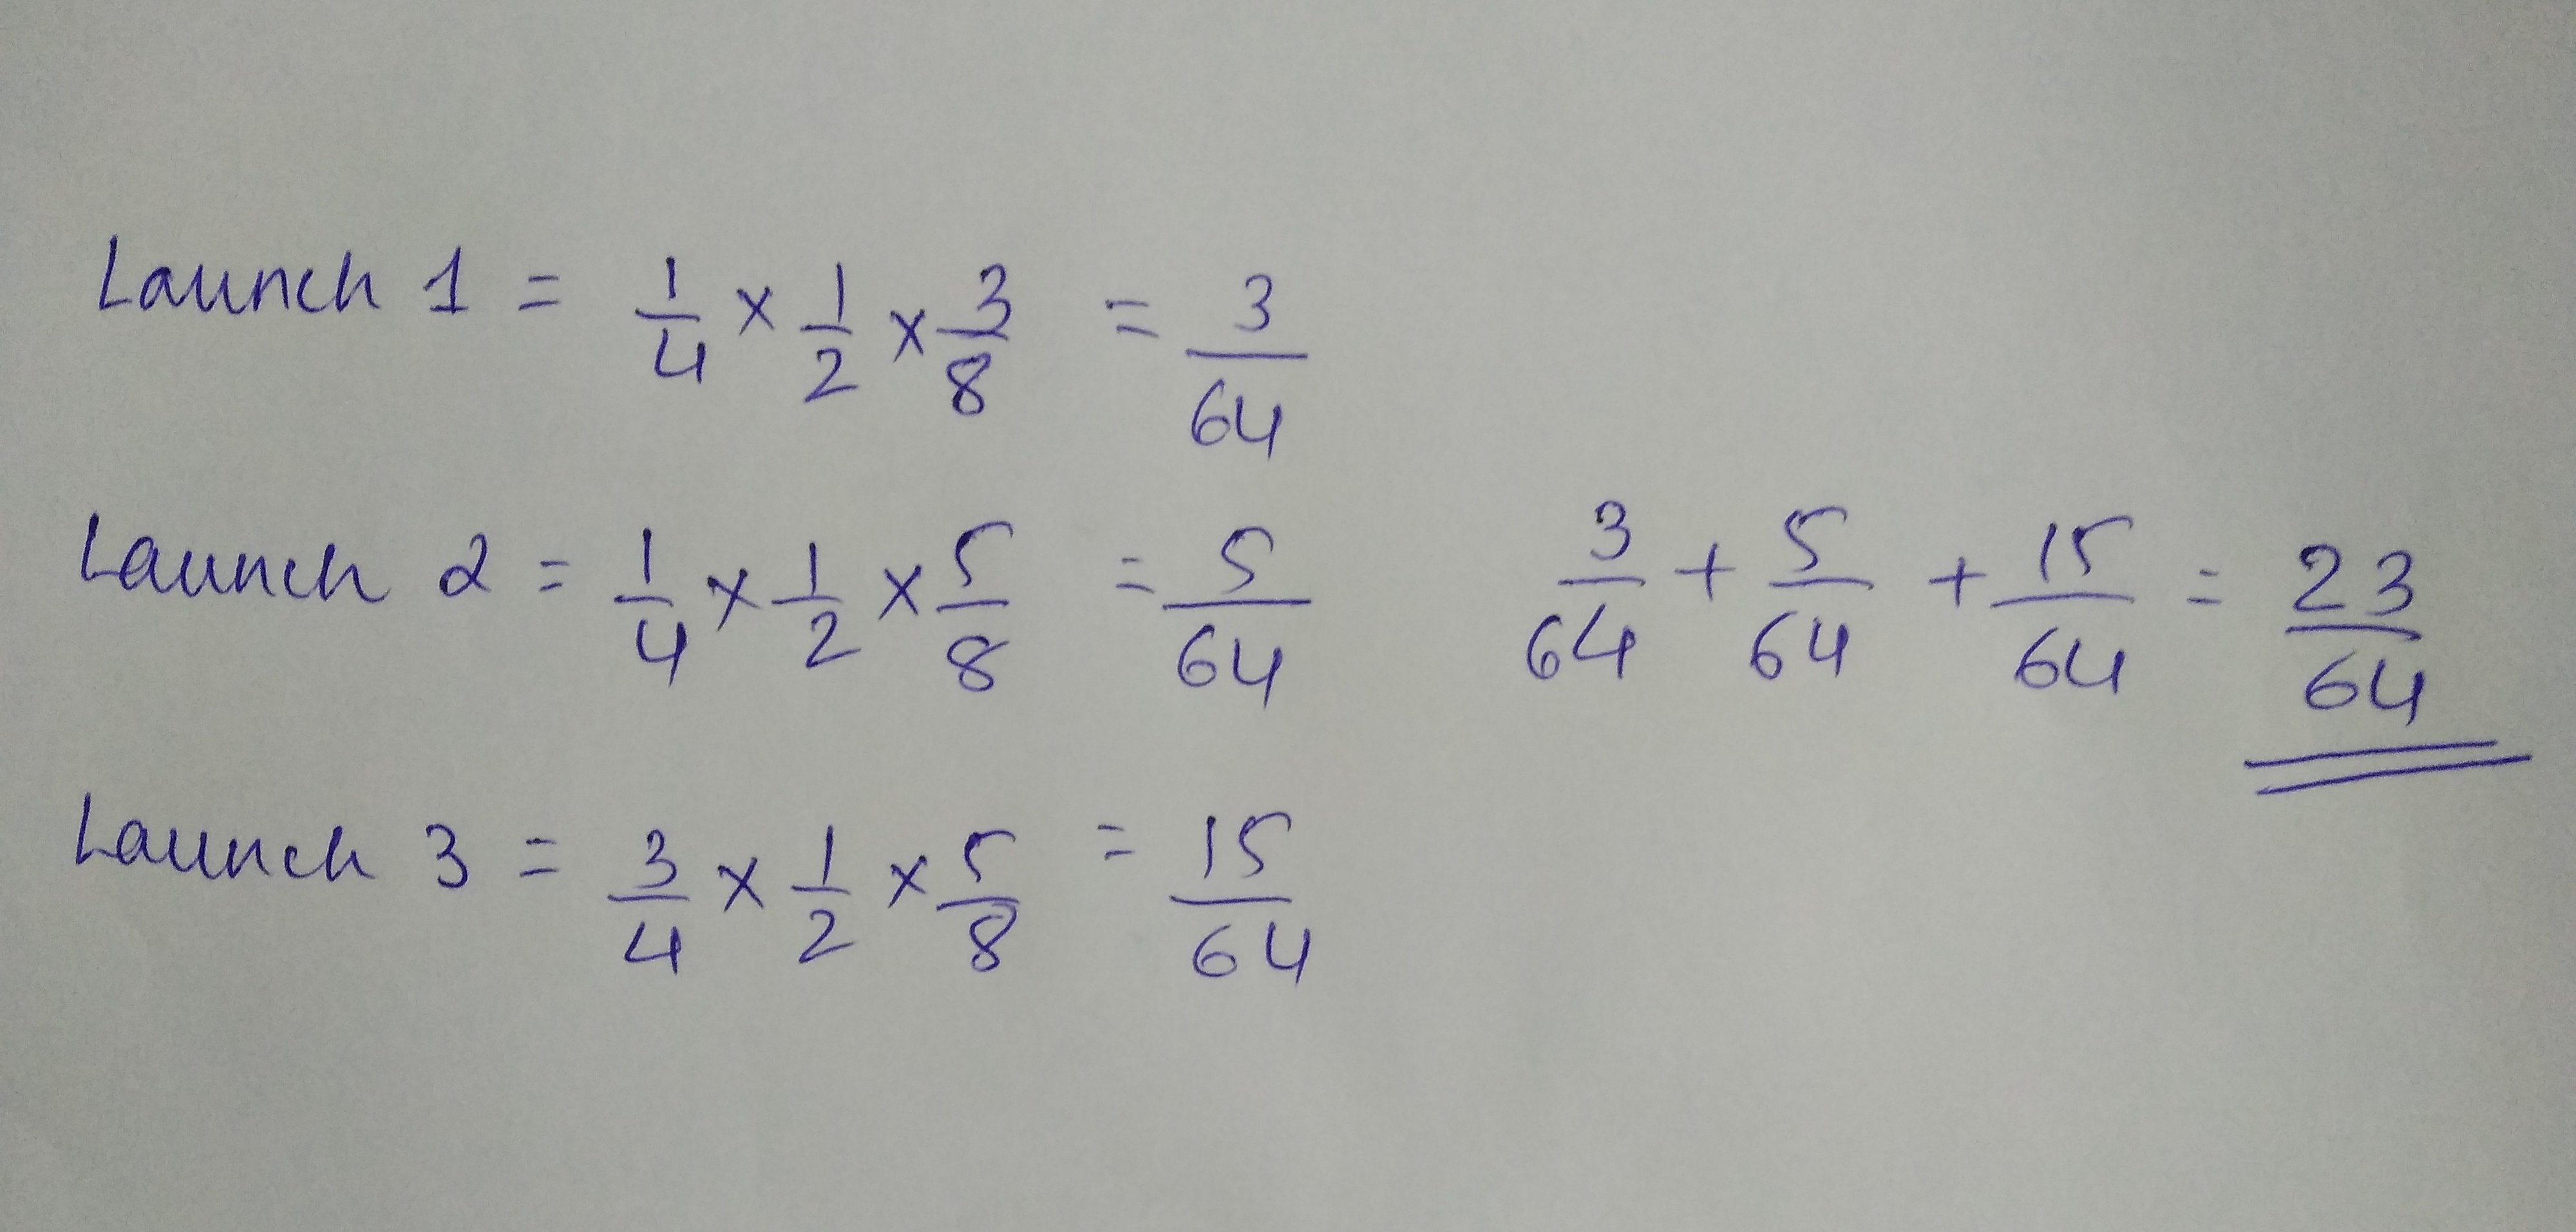 Launch 1 = 1/4 × 1/2 × 3/8 = 3/64
Launch 2 = 1/4 × 1/2 × 5/8 = 5/64
3/64 + 5/64 + 15/64 = 23/64
Launch 3 = 3/4 × 1/2 × 5/8 = 15/64